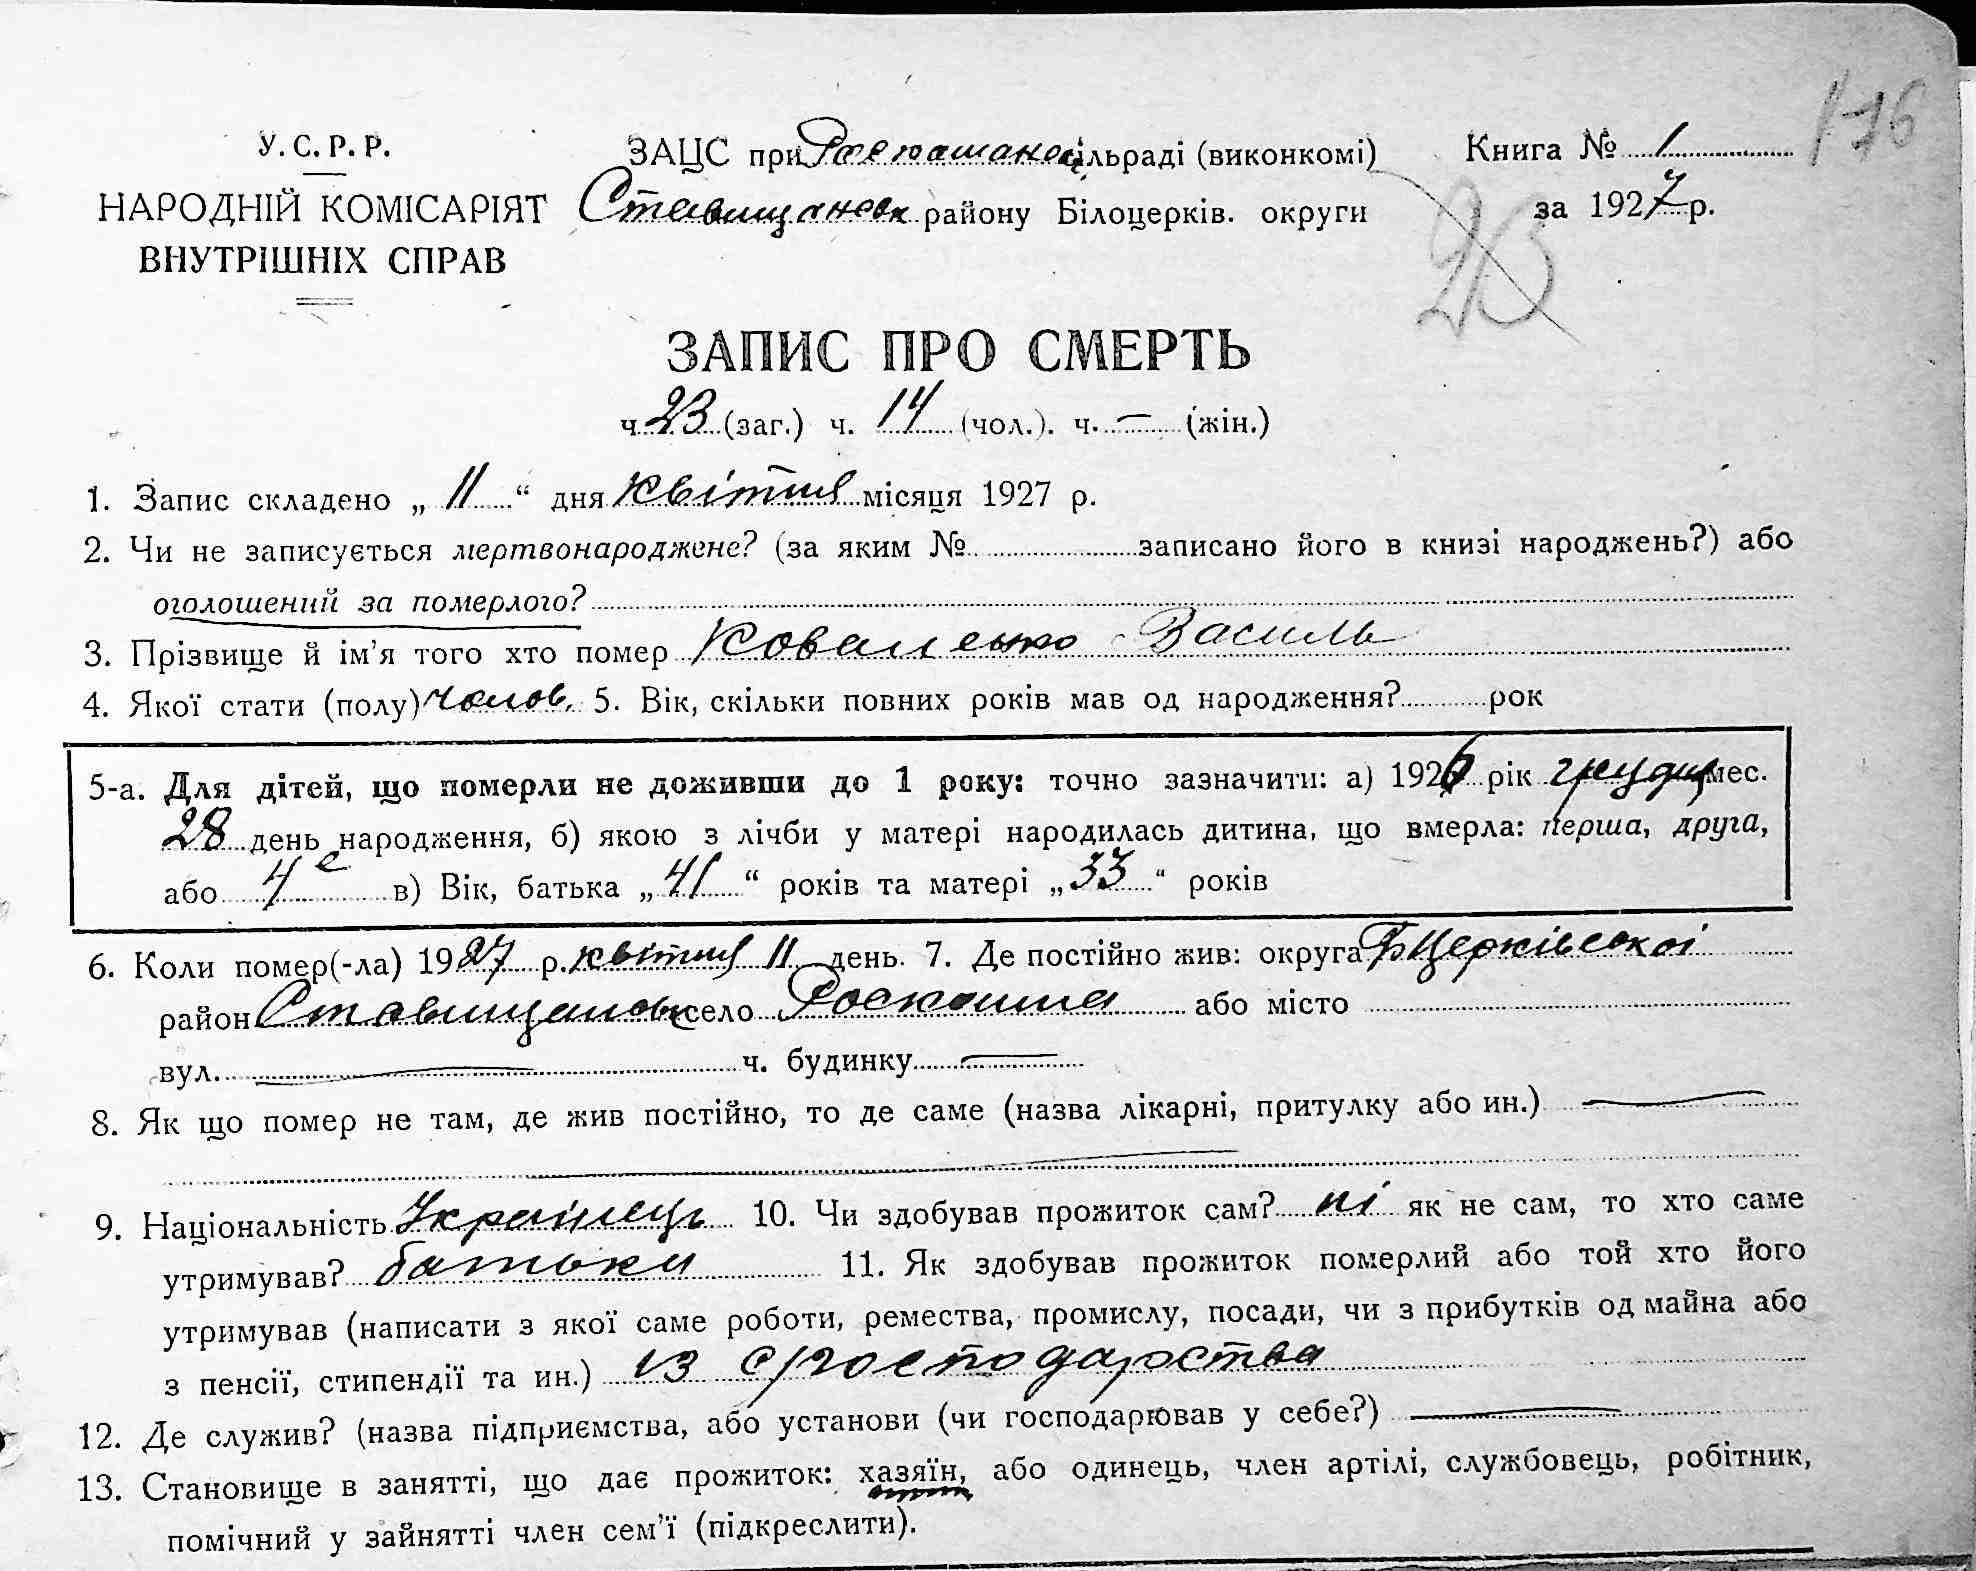 176
У. С. Р. Р.
НАРОДНІЙ КОМІСАРІЯТ
ВНУТРІШНІХ СПРАВ
ЗАЦС при сільраді (виконкомі)
Ставищанськ району Білоцерків. округи
Книга № 1
за 1927 р.
23
ЗАПИС ПРО СМЕРТЬ
ч. 23 (заг.) ч. 14 (чол.). ч. — (жін.)
1. Запис складено „ 11 “ дня квітня місяця 1927 р.
2. Чи не записується мертвонароджене? (за яким № записано його в книзі народжень?) або
оголошений за померлого?
3. Прізвище й ім’я того хто помер Коваленко Василь
4. Якої стати (полу) чолов. 5. Вік, скільки повних років мав од народження? рок
5-а. Для дітей, що померли не доживши до 1 року: точно зазначити: а) 1926 рік грудня мес.
28 день народження, б) якою з лічби у матері народилась дитина, що вмерла: перша, друга,
або 4е в) Вік, батька „ 41 “ років та матері „ 33 “ років
6. Коли помер(-ла) 1927 р. квітня 11 день. 7. Де постійно жив: округа Б Церківської
район Ставищанськ село Роскошна або місто
вул. — ч. будинку —
8. Як що помер не там, де жив постійно, то де саме (назва лікарні, притулку або ин.) —
9. Національність Українець 10. Чи здобував прожиток сам? ні як не сам, то хто саме
утримував? батьки 11. Як здобував прожиток померлий або той хто його
утримував (написати з якої саме роботи, ремества, промислу, посади, чи з прибутків од майна або
з пенсії, стипендії та ин.) із с/господарства
12. Де служив? (назва підприємства, або установи (чи господарював у себе?) —
13. Становище в занятті, що дає прожиток: хазяїн, або одинець, член артілі, службовець, робітник,
помічний у зайнятті член сем’ї (підкреслити).